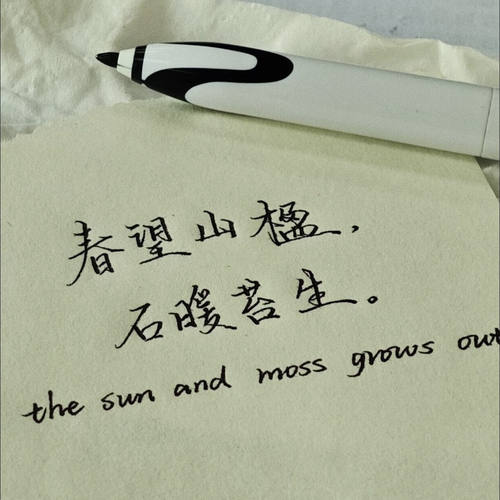 春望山楹，
石暖苔生。
the sun and moss grows out